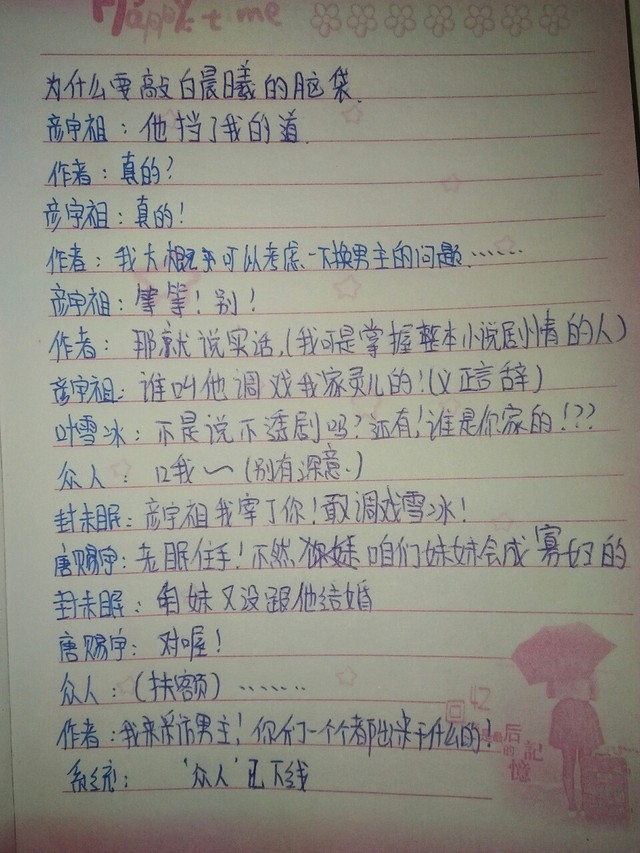 Happy time
为什么要敲白晨曦的脑袋.
彦宇祖：他挡了我的道.
作者：真的？
彦宇祖：真的！
作者：我大概可以考虑一下换男主的问题……
彦宇祖：等等！别！
作者：那就说实话.(我可是掌握整本小说剧情的人)
彦宇祖：谁叫他调戏我家灵儿的！(义正言辞)
叶雪冰：不是说不透剧吗？还有！谁是你家的！??
众人：口我~(别有深意.)
封未眠：彦宇祖我宰了你！敢调戏雪冰！
唐赐宇：老眠住手！不然咱们妹妹会成寡妇的
封未眠：妹又没跟他结婚
唐赐宇：对喔！
众人：(扶额)……
作者：我来采访男主！你们一个个都出来干什么的！
系统：‘众人’已下线
42
最后的
回
记憶